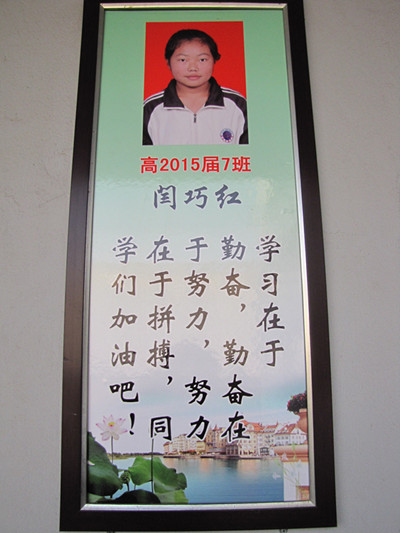 高2015届7班
闫巧红
学习在于
勤奋，勤奋在
于努力，努力
在于拼搏，同
学们加油吧！